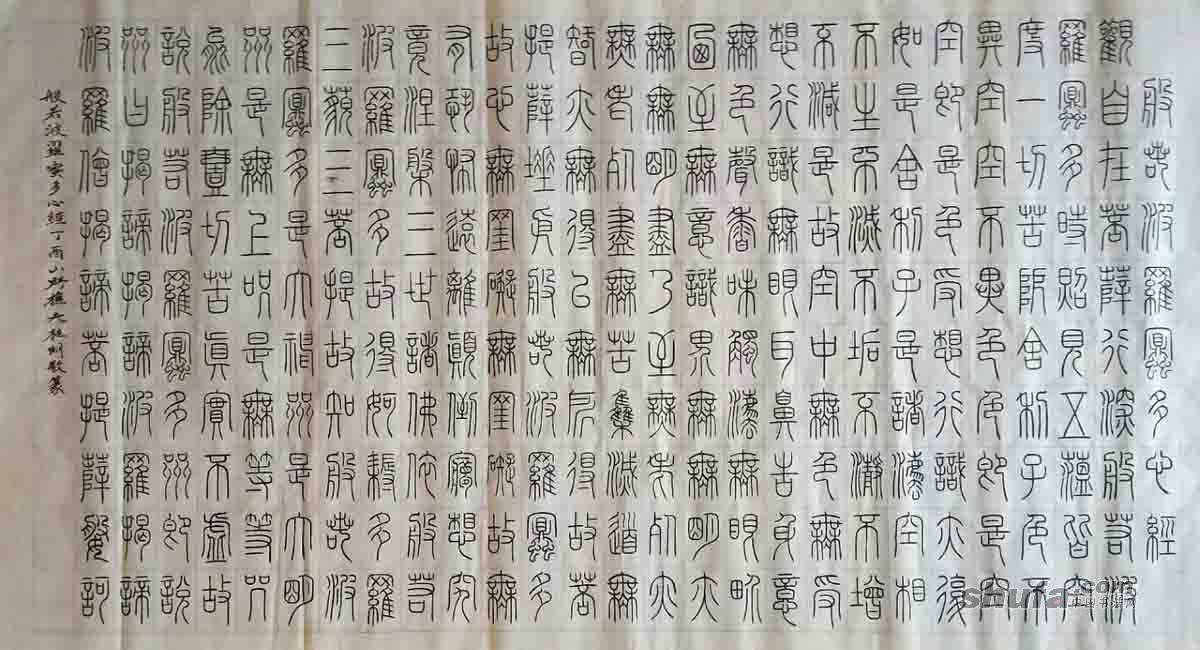 般若波羅蜜多心經
觀自在菩薩行深般若波
羅蜜多時照見五蘊皆空
度一切苦厄舍利子色不
異空空不異色色即是空
空即是色受想行識亦復
如是舍利子是諸法空相
不生不滅不垢不淨不增
不減是故空中無色無受
想行識無眼耳鼻舌身意
無色聲香味觸法無眼界
乃至無意識界無無明亦
無無明盡乃至無老死亦
無老死盡無苦集滅道無
智亦無得以無所得故菩
提薩埵依般若波羅蜜多
故心無罣礙無罣礙故無
有恐怖遠離顛倒夢想究
竟涅槃三世諸佛依般若
波羅蜜多故得阿耨多羅
三藐三菩提故知般若波
羅蜜多是大神咒是大明
咒是無上咒是無等等咒
能除一切苦真實不虛故
說般若波羅蜜多咒即說
咒曰揭諦揭諦波羅揭諦
波羅僧揭諦菩提薩婆訶
般若波羅蜜多心經丁酉山野樵夫杭州敬篆
shufa.com
中国书法网